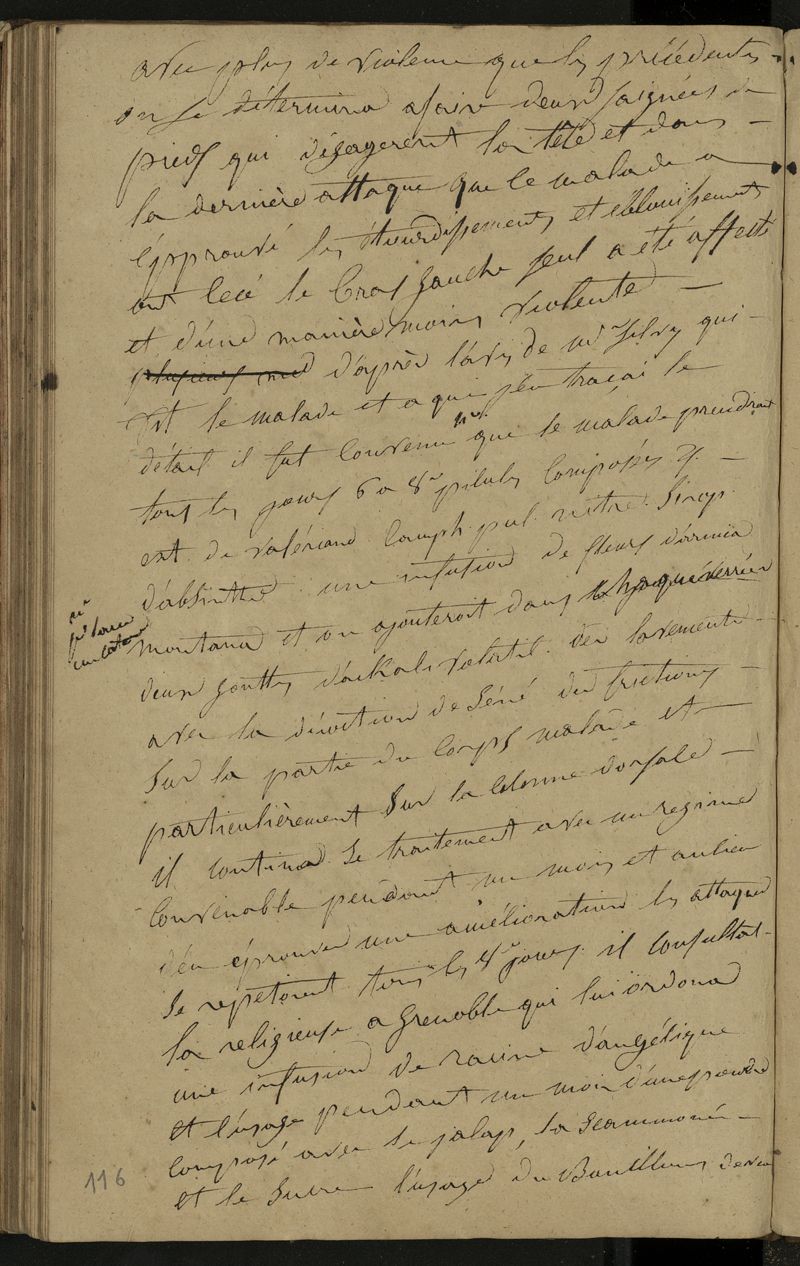 avec plus de violence que les précédentes
on se détermina a faire deux saignées du
pied qui dégagerent la tête et dans
la dernière attaque que le malade a
épprouvé les étourdissements et eblouissements
ont cecé le bras gauche seul a été affecté
et d'une manière moins violente
d'après l'avis de mr Silvy qui
vit le malade et a qui j'en traçai le
détail il fut convenu que le malade prendroit
tous les jours 6 a 8 pilules composées d.
ext. de valériane camph. pul. nitre Sirop
d'absinthe une infusion de fleurs d'arnica
montana et on ajouteroit dans chaque verrée
deux gouttes d'alkali volatil des lavements
avec la décoction de Séné des frictions
Sur la partie du Corps malade et
particulièrement Sur la Colonne dorsale
il continua Se traitement avec un regime
Convenable pendant un mois et aulieu
d'en éprouver une amélioration les attaques
Se repetoient tous les 8 jours. il Consulta
la religieuse a grenoble qui lui ordona
une infusion de racine d'angélique
et l'usage pendant un mois d'une poudre
Composé avec le jalap, la Scammonée
et le Sucre l'usage du Bouillons de veau
116